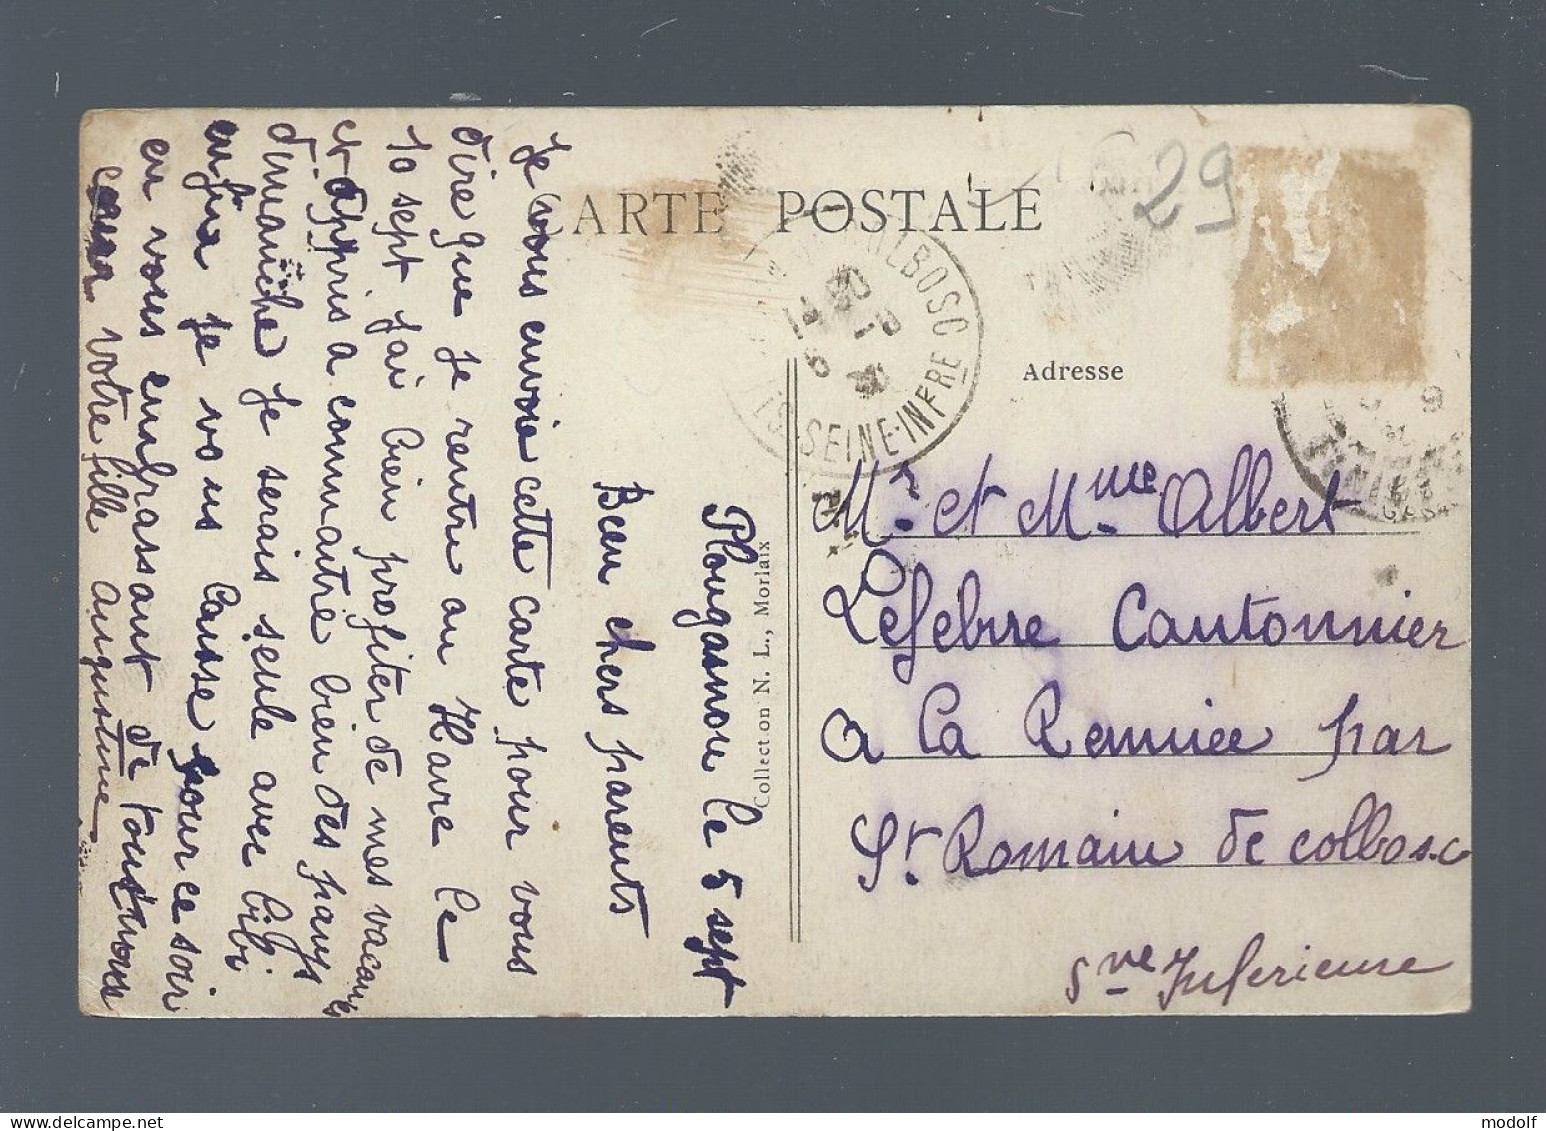 CARTE POSTALE
29
Adresse
Collection N. L., Morlaix
Plougasnou le 5 sept
Bien chers parents
Je vous envoie cette carte pour vous
dire que je rentre au Havre le
10 sept j'ai bien profiter de mes vacances
et appris a connaitre bien des pays
dimanche je serais seule avec bibi
enfin je vous laisse pour ce soir
en vous embrassant de tous nous
votre fille augustine
Mr. et Mme Albert
Lefebvre Cantonnier
a la Remuée par
St Romain de colbosc
Sne Inferieure
COLBOSC
SEINE-INFRE
modolf